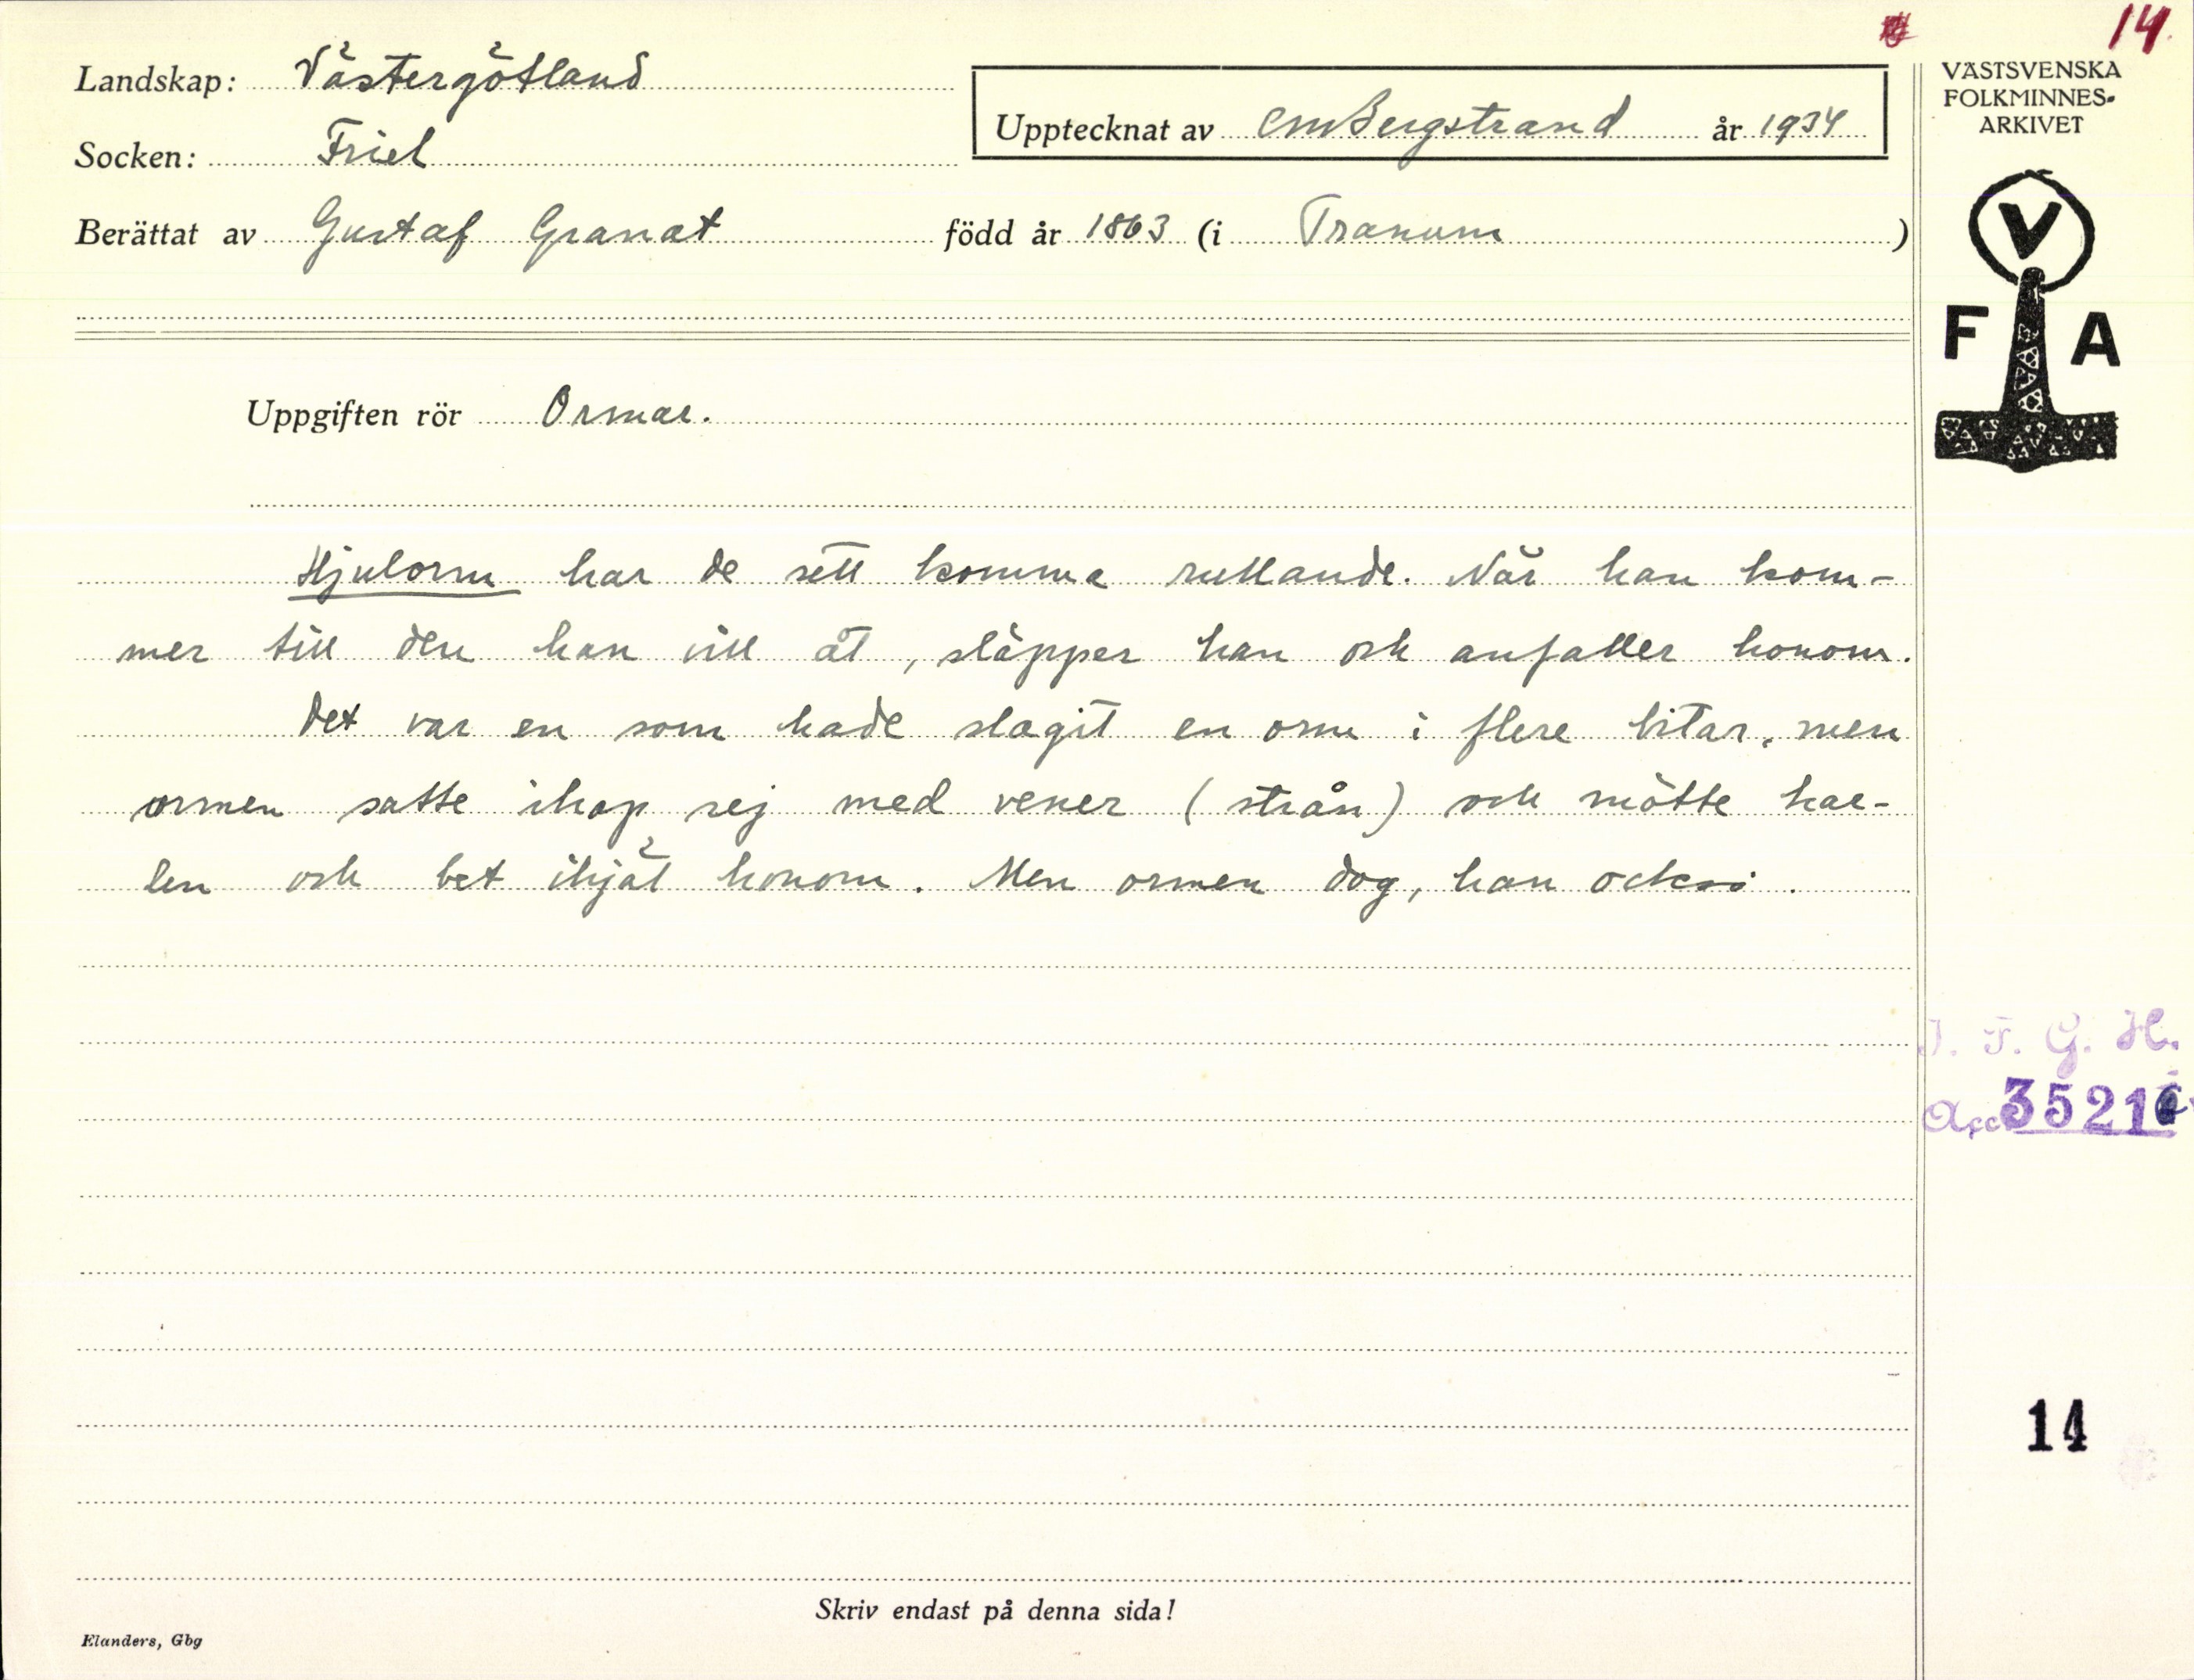 14.
Landskap: Västergötland
Socken: Friel
Upptecknat av CM Bergstrand år 1934
Berättat av Gustaf Granat född år 1863 (i Tranum)
VÄSTSVENSKA
FOLKMINNES-
ARKIVET
V
F A
Uppgiften rör Ormar.
Hjulorm har de sett komma rullande. När han kom-
mer till den han vill åt, släpper han och anfaller honom.
Det var en som hade slagit en orm i flere bitar, men
ormen satte ihop sej med vener (strån) och mötte kar-
len och bet ihjäl honom. Men ormen dog, han också.
I. F. G. H.
Acc 3521
14
Skriv endast på denna sida!
Elanders, Gbg